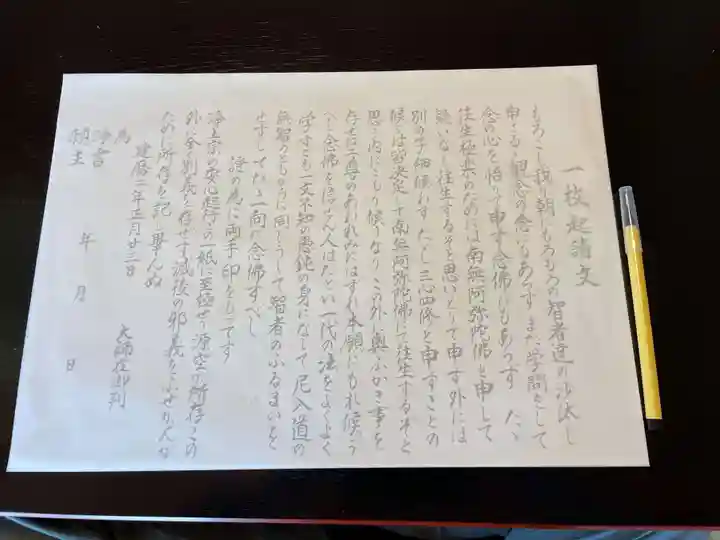 一枚起請文
もろこし我が朝にもろもろの智者達の沙汰し
申さるゝ観念の念にもあらず また学問をして
念の心を悟りて申す念佛にもあらず たゞ
往生極楽のためには南無阿弥陀佛と申して
疑いなく往生するぞと思いとりて申す外には
別の子細候わず たゞし三心四修と申すことの
候は皆決定して南無阿弥陀佛にて往生するぞと
思う内にこもり候うなり この外に奥ふかき事を
存ぜば二尊のあわれみにはずれ本願にもれ候う
べし 念佛を信ぜん人はたとい一代の法をよくよく
学すとも一文不知の愚鈍の身になして尼入道の
無智のともがらに同じうして智者のふるまいを
せずしてたゞ一向に念佛すべし
證の為に両手印をもってす
浄土宗の安心起行この一紙に至極せり 源空が所存この
外に全く別義を存ぜず滅後の邪義をふせがんが
ために所存を記し畢んぬ
建暦二年正月廿三日
大師在御判
為
浄書
願主
年 月 日